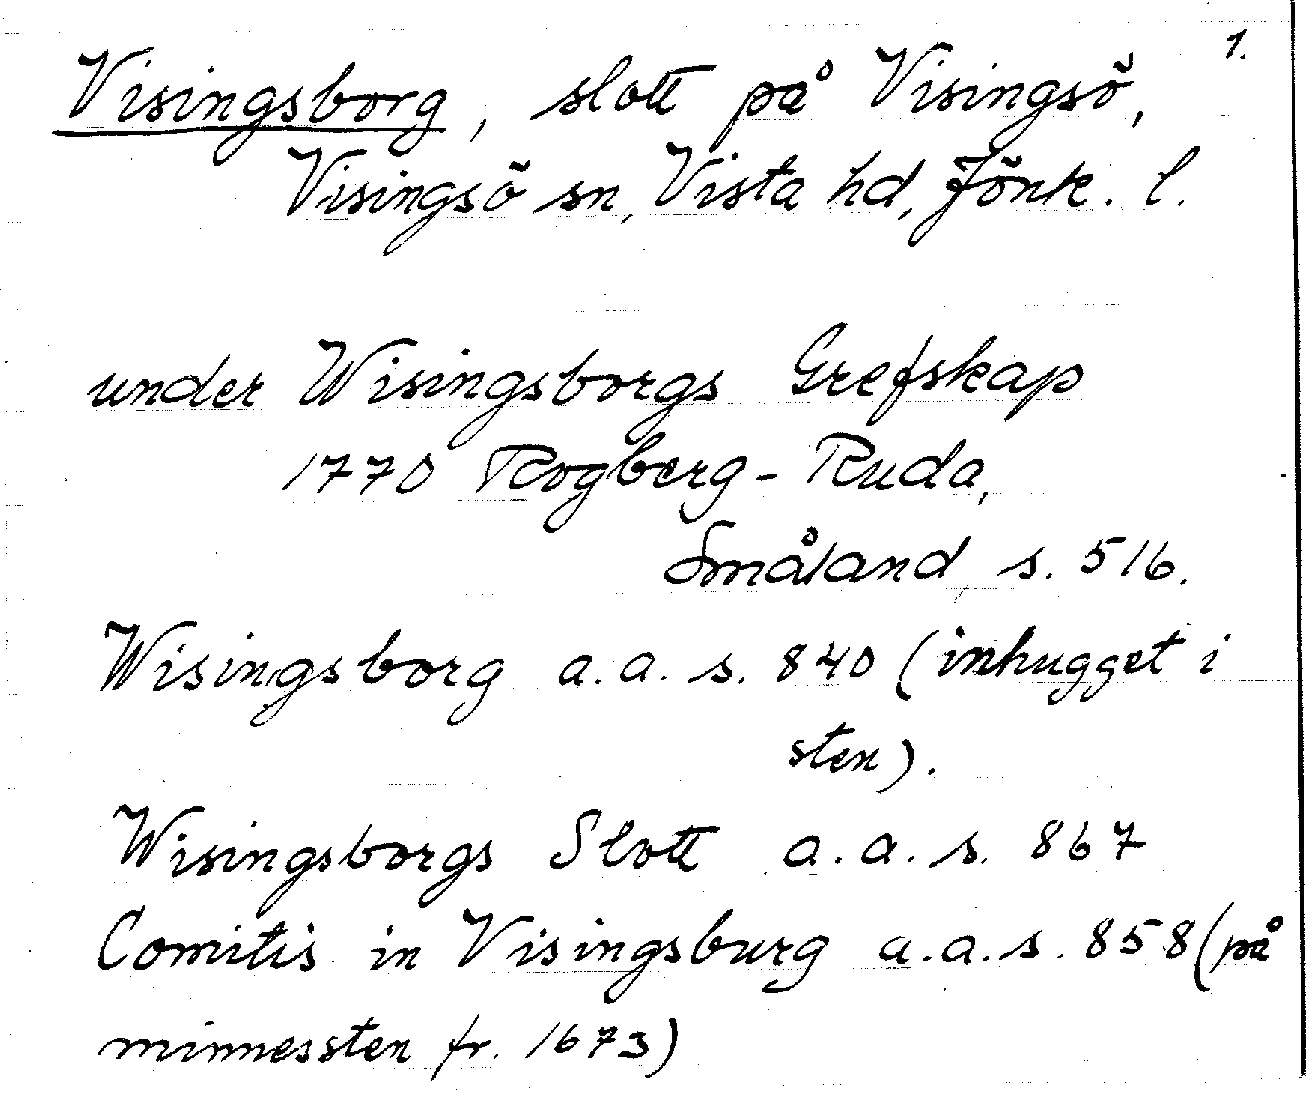 1.
Visingsborg, slott på Visingsö,
Visingsö sn, Vista hd, Jönk. l.
under Wisingsborgs Grefskap
1770 Rogberg-Ruda,
Småland s. 516.
Wisingsborg a.a. s. 840 (inhugget i
sten).
Wisingsborgs Slott a.a. s. 867
Comitis in Visingsburg a.a. s. 858 (på
minnessten fr. 1673)